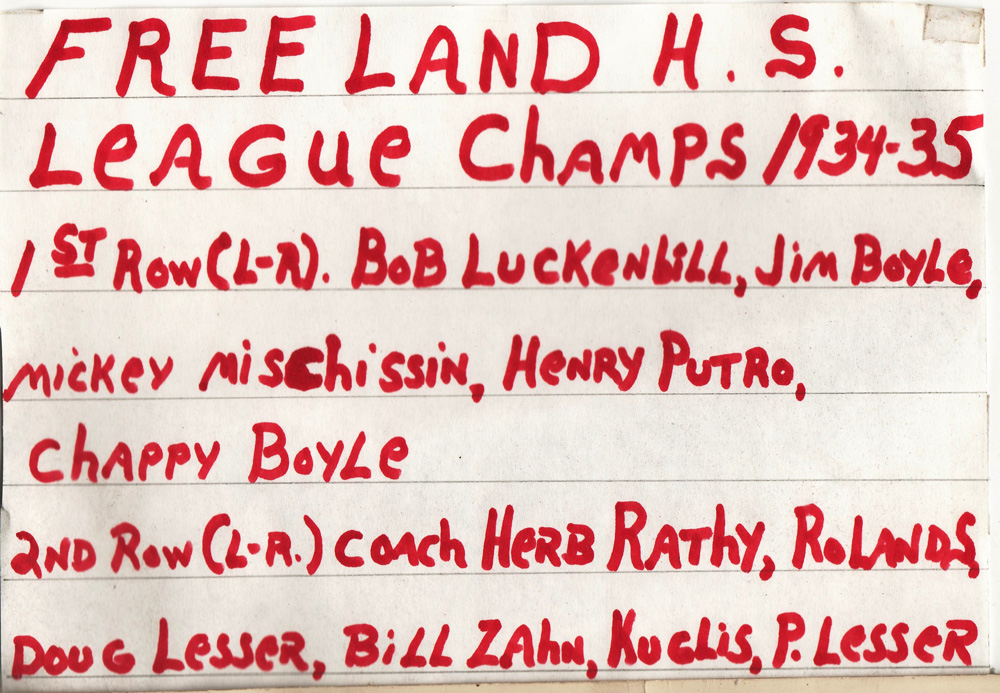 FREELAND H.S.
LeAGue ChAMPS 1934-35
1ST Row (L-R). BoB LuckenbiLL, Jim BoyLe,
mickey mischissin, HENRY PuTRo,
ChAPPY BoyLe
2ND Row (L-R.) coach HeRB RAThy, RoLANDS,
Doug Lesser, BiLL ZAhn, Kuglis, P. Lesser